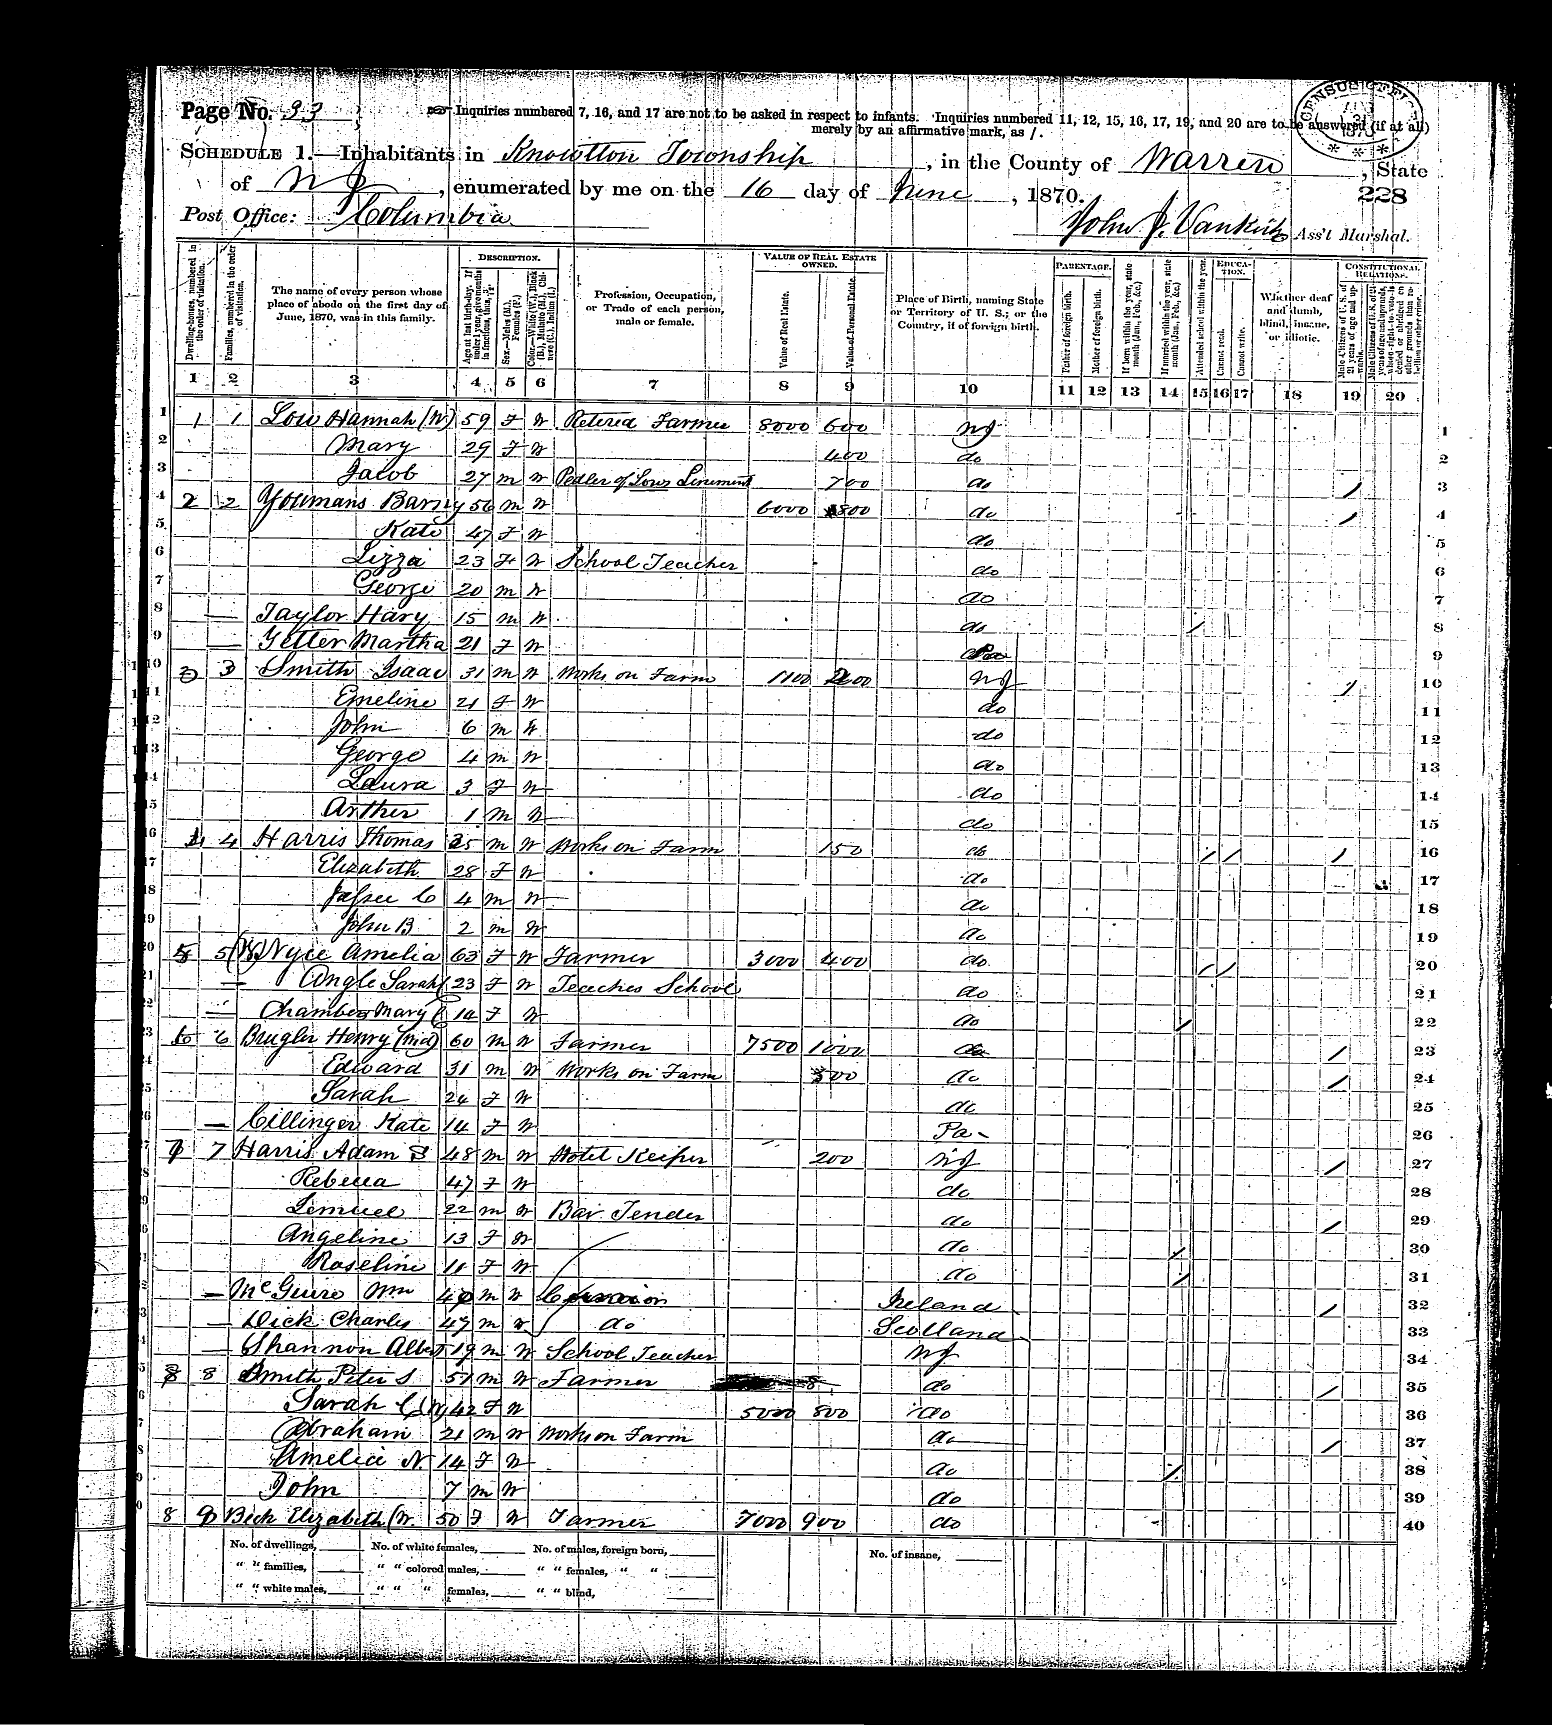 Page No. 33
Inquiries numbered 7, 16, and 17 are not to be asked in respect to infants. Inquiries numbered 11, 12, 15, 16, 17, 19, and 20 are to be answered (if at all)
merely by an affirmative mark, as /.
CENSUS OFFICE
SCHEDULE 1.—Inhabitants in Knowlton Township, in the County of Warren, State
of N J, enumerated by me on the 16 day of June, 1870.
228
Post Office: Columbia
John J. Vankirk Ass't Marshal.
Dwelling-houses, numbered in the order of visitation.
Families, numbered in the order of visitation.
The name of every person whose place of abode on the first day of June, 1870, was in this family.
DESCRIPTION.
Age at last birth-day. If under 1 year, give months in fractions, thus, 3/12
Sex.—Males (M.), Females (F.)
Color.—White (W.), Black (B.), Mulatto (M.), Chinese (C.), Indian (I.)
Profession, Occupation, or Trade of each person, male or female.
VALUE OF REAL ESTATE OWNED.
Value of Real Estate.
Value of Personal Estate.
Place of Birth, naming State or Territory of U. S.; or the Country, if of foreign birth.
PARENTAGE.
Father of foreign birth.
Mother of foreign birth.
If born within the year, state month (Jan., Feb., &c.)
If married within the year, state month (Jan., Feb., &c.)
Attended school within the year.
EDUCATION.
Cannot read.
Cannot write.
Whether deaf and dumb, blind, insane, or idiotic.
CONSTITUTIONAL RELATIONS.
Male Citizens of U. S. of 21 years of age and upwards.
Male Citizens of U. S. of 21 years of age and upwards, whose right to vote is denied or abridged on other grounds than rebellion or other crime.
1 2 3 4 5 6 7 8 9 10 11 12 13 14 15 16 17 18 19 20
1 1 1 Low Hannah (W) 59 F W Retered Farmer 8000 600 NJ 1
2 Mary 29 F W 400 do 2
3 Jacob 27 m W Pedler of Lows Liniment 700 do / 3
4 2 2 Youmans Barny 56 m W 6000 1800 do / 4
5 Kate 47 F W do 5
6 Lizza 23 F W School Teacher do 6
7 George 20 m W do 7
8 — Taylor Hary 15 m W do / 8
9 — Yetter Martha 21 F W Pa 9
10 3 3 Smith Isaac 31 m W Works on Farm 1100 200 NJ / 10
11 Emeline 21 F W do 11
12 John 6 m W do 12
13 George 4 m W do 13
14 Laura 3 F W do 14
15 Arther 1 m W do 15
16 4 4 Harris Thomas 25 m W Works on Farm 150 do / / / 16
17 Elizabeth 28 F W do 17
18 C 4 m W do 18
19 John B 2 m W do 19
20 5 5 (W) Nyce Amelia 63 F W Farmer 3000 400 do / / 20
21 — Angle Sarah 23 F W Teaches School do 21
22 — Chambers Mary C 14 F W do / 22
23 6 6 Brugler Henry (Wid) 60 m W Farmer 7500 1000 do / 23
24 Edward 31 m W Works on Farm 300 do / 24
25 Sarah 24 F W do 25
26 — Cillinger Kate 14 F W Pa 26
27 7 7 Harris Adam S 48 m W Hotel Keiper 200 NJ / 27
28 Rebecca 47 F W do 28
29 Lemuel 22 m W Bar Tender do / 29
30 Angeline 13 F W do / 30
31 Roseline 11 F W do / 31
32 — McGuire Wm 40 m W Ireland / 32
33 — Dick Charles 47 m W do Scotland 33
34 — Shannon Albert 19 m W School Teacher NJ 34
35 8 8 Smith Peter S 51 m W Farmer do / 35
36 Sarah C (W) 42 F W 5000 800 do 36
37 Abraham 21 m W Works on Farm do / 37
38 Amelia N. 14 F W do / 38
39 John 7 m W do 39
40 8 9 Beck Elizabeth (W. 50 F W Farmer 7000 900 do 40
No. of dwellings, No. of white females, No. of males, foreign born, No. of insane,
" " families, " " colored males, " " females, " "
" " white males, " " " females, " " blind,